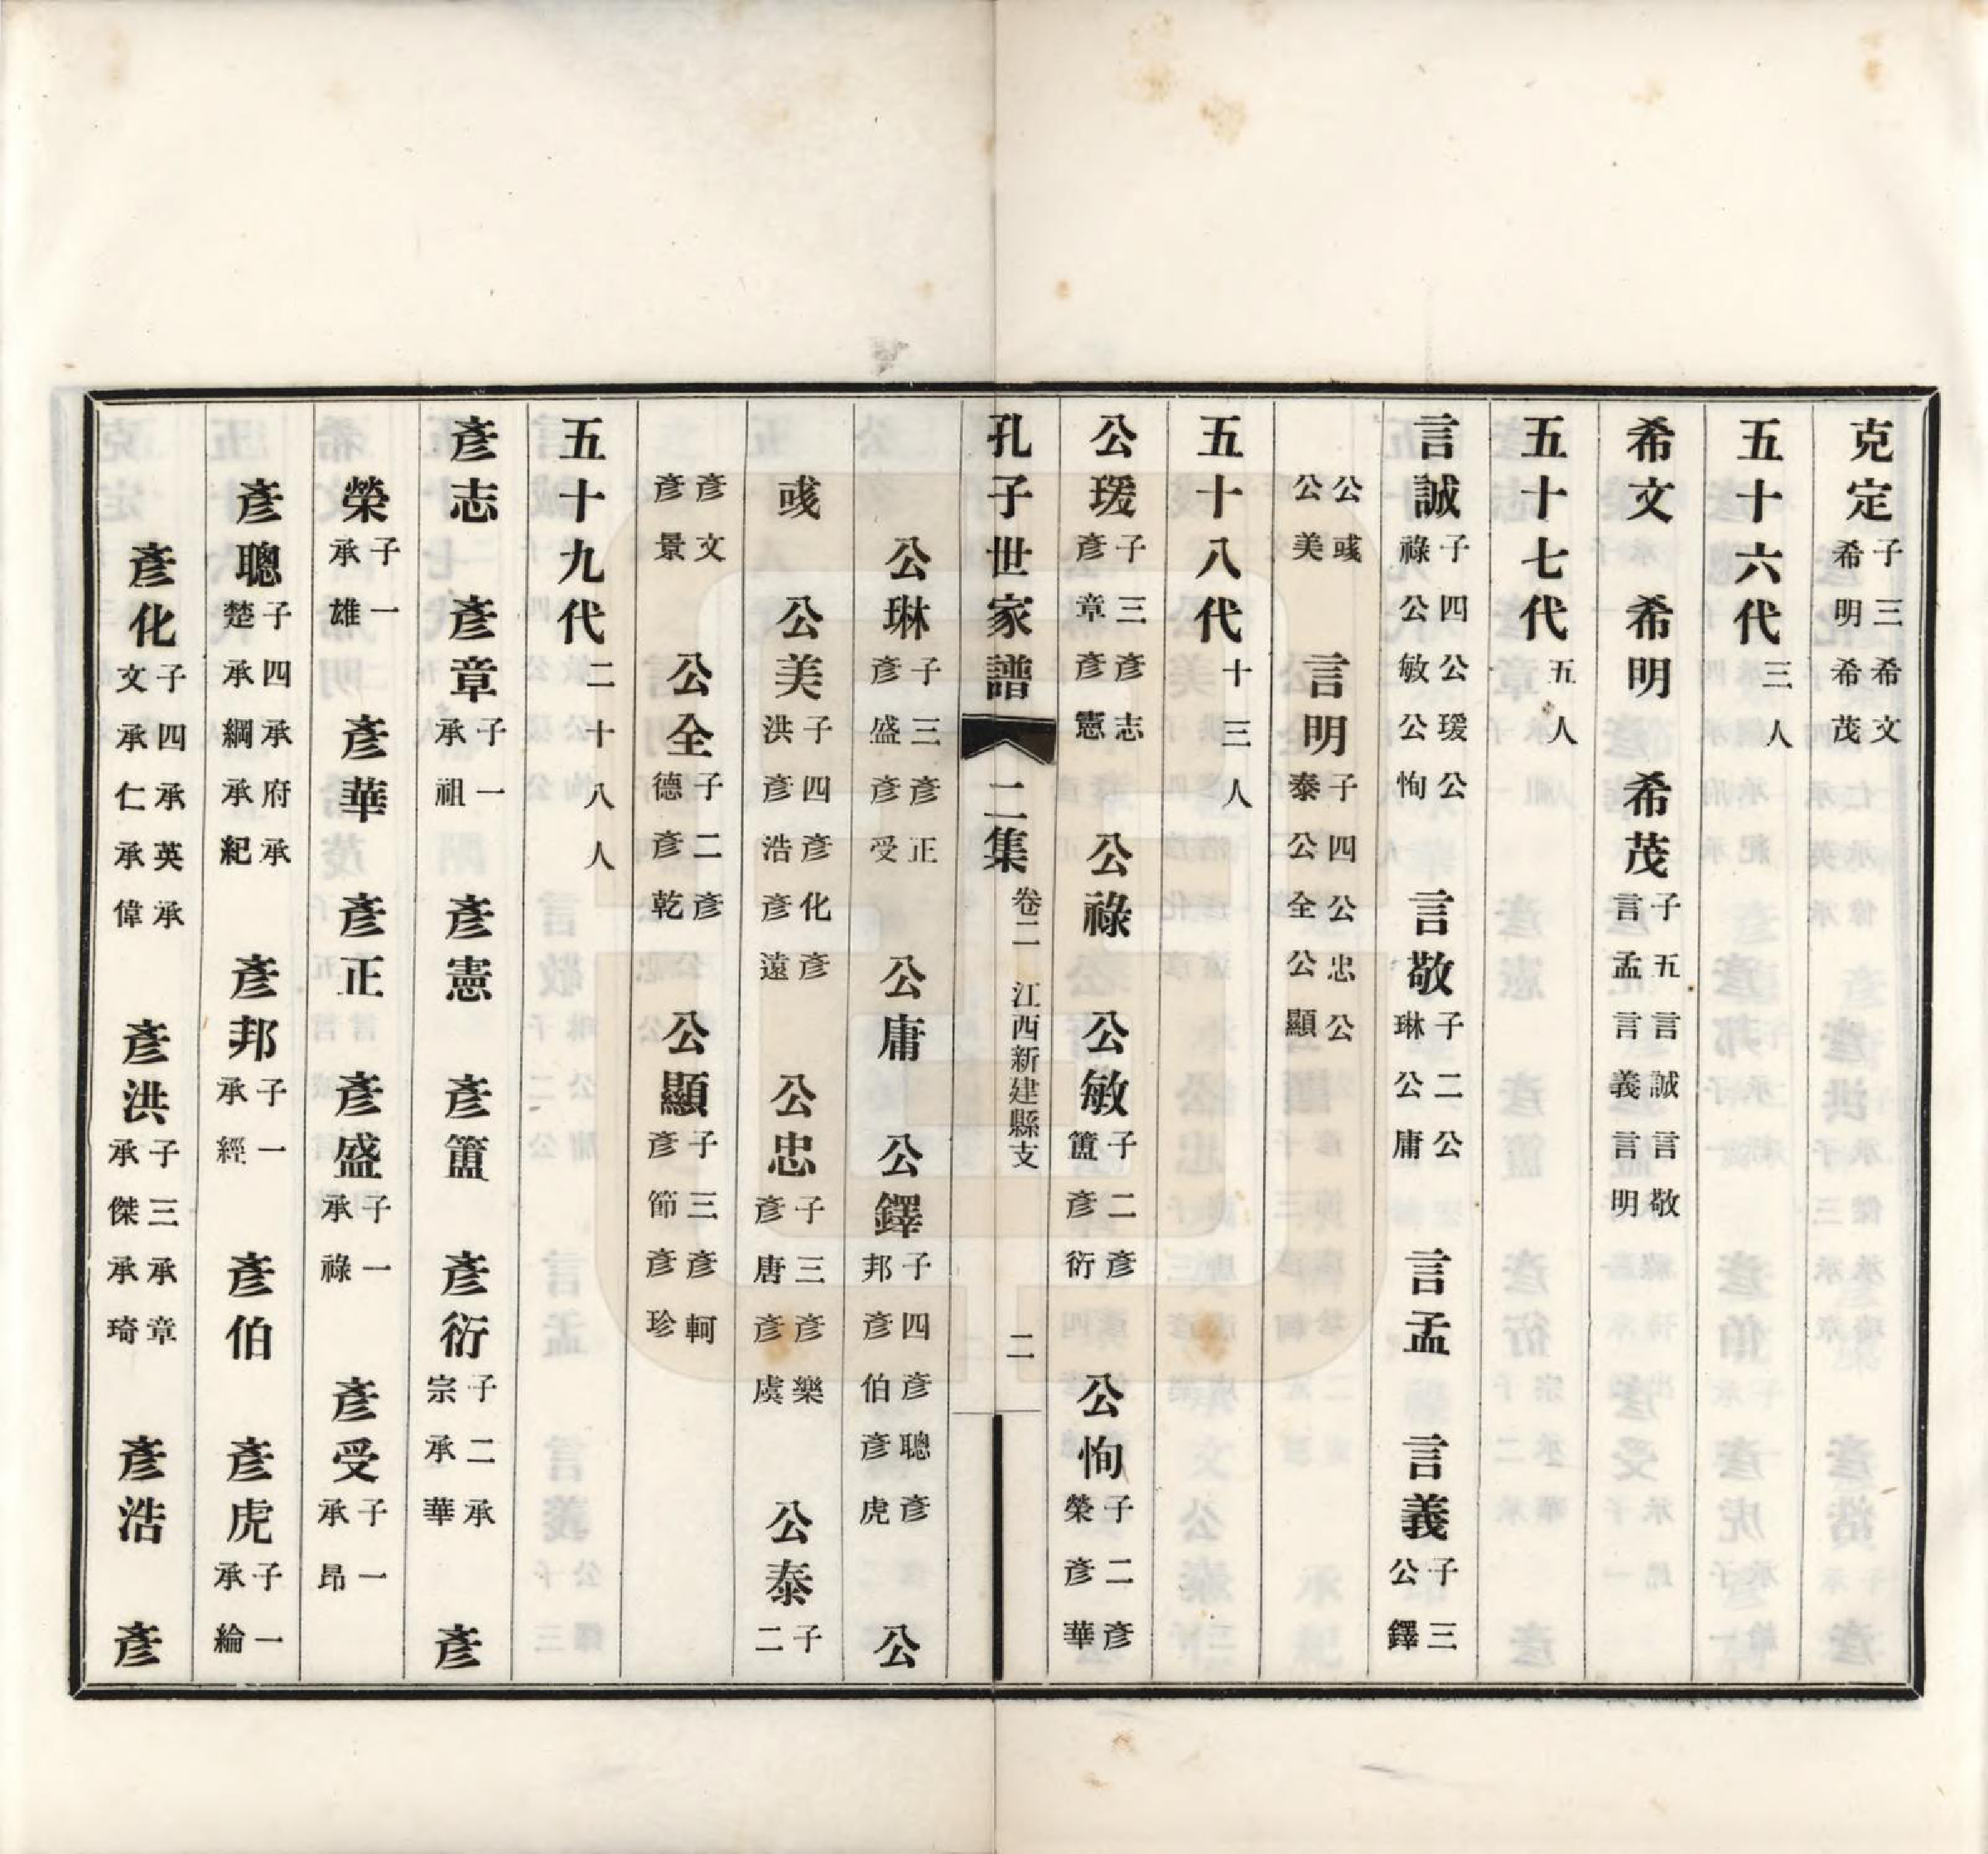 克定子三希文希明希茂
五十六代三人
希文　希明　希茂子五言誠言敬言孟言義言明
五十七代五人
言誠子四公瑗公祿公敏公恂　言敬子二公琳公庸　言孟　言義子三公鐸
公彧公美　言明子四公忠公泰公全公顯
五十八代十三人
公瑗子三彥志彥章彥憲　公祿　公敏子二彥簠彥衍　公恂子二彥榮彥華
孔子世家譜　二集　卷二　江西新建縣支　二
公琳子三彥正彥盛彥受　公庸　公鐸子四彥聰彥邦彥伯彥虎　公
彧　公美子四彥化彥洪彥浩彥遠　公忠子三彥樂彥唐彥虞　公泰子二
彥文彥景　公全子二彥德彥乾　公顯子三彥軻彥節彥珍
五十九代二十八人
彥志　彥章子一承祖　彥憲　彥簠　彥衍子二承宗承華　彥
榮子一承雄　彥華　彥正　彥盛子一承祿　彥受子一承昂
彥聰子四承府承楚承綱承紀　彥邦子一承經　彥伯　彥虎子一承綸
彥化子四承英承文承仁承偉　彥洪子三承章承傑承琦　彥浩　彥